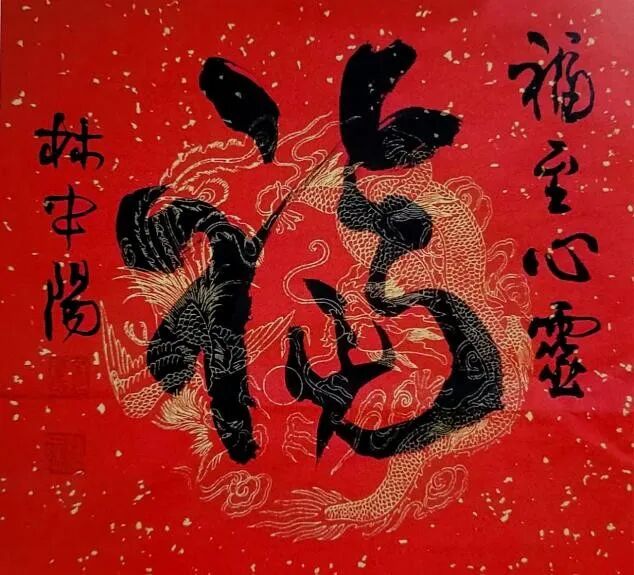 福至心靈
福
林中陽